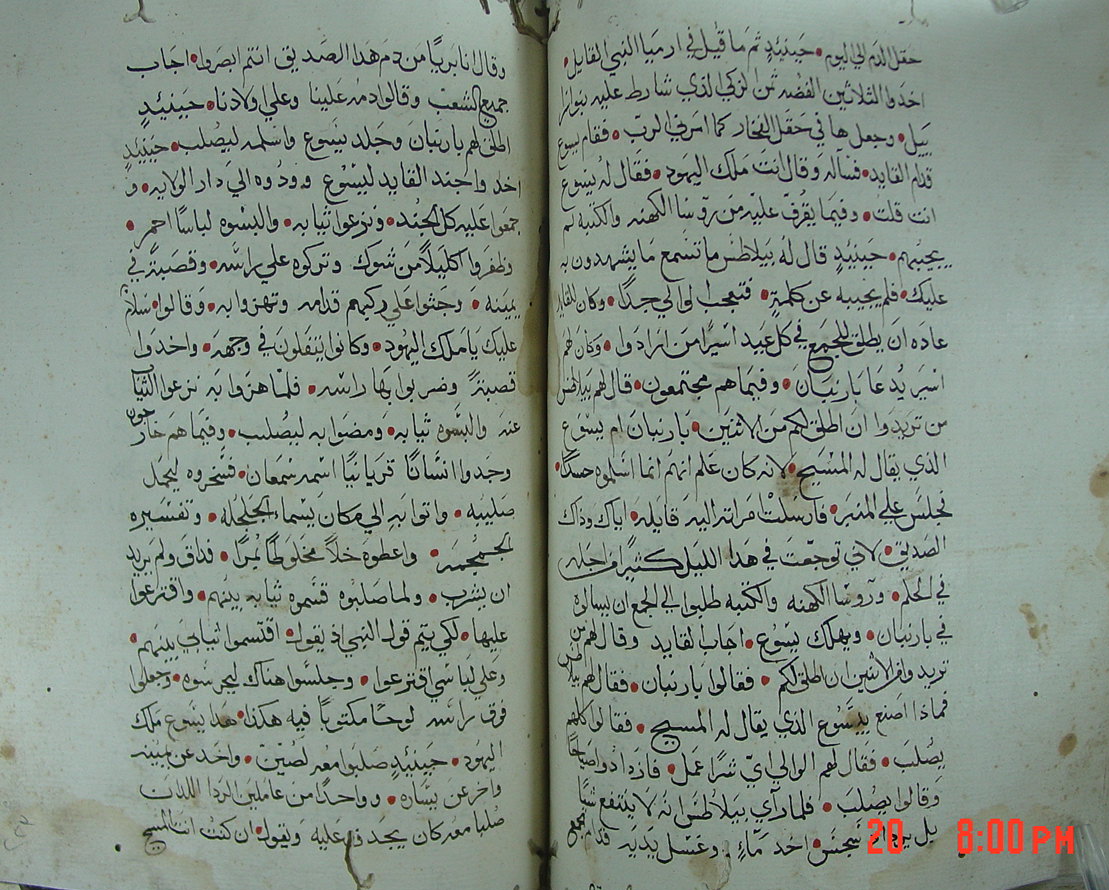 حقل الدم الي اليوم • حينيدٍ ثم ما قيل في ارميا النبي القايل •
اخدوا الثلاثين الفضه ثمن الزكي الذي شارط عليه بنوا
وجعلوها في حقل الفخار كما امرني الربّ • فقام يسوع
قدام القايد • فساله وقال انت ملك اليهود • فقال له يسوع
انت قلت • وفيما يقرف عليه من روسا الكهنه والكتبه لم
يجيبهم • حينيدٍ قال له بيلاطس ما تسمع ما يشهدون به
عليك • فلم يجيبه عن كلمةٍ • فتعجب الوالي جدًا • وكان للقايد
عاده ان يطلق للجمع في كل عيد اسيرًا من ارادوا • وكان لهم
اسير يدعا باربنان • وفيما هم مجتمعون • قال لهم بيلاطس
من تريدوا ان اطلق لكم من الاثنين • باربنان ام يسوع
الذي يقال له المسيح • لانه كان علم انهم انما اسلموه حسدًا •
فجلس علي المنبر • فارسلت امراته اليه قايله • اياك وذاك
الصديق • لاني توجعت في هدا الليل كثيرًا من اجله
في الحلم • وروسا الكهنه والكتبه طلبوا الي الجمع ان يسالوه
في باربنان • ويهلك يسوع • اجاب القايد وقال لهم من
تريدوا من الاثنين ان اطلق لكم • فقالوا باربنان • فقال لهم بيلاطس
فماذا اصنع بيسوع الذي يقال له المسيح • فقالوا كلهم
يصلب • فقال لهم الوالي ايّ شرًا عمل • فازدادوا صياحًا
وقالوا يصلب • فلما رآي بيلاطس انه لا ينتفع شيًا
بل يزداد سجس • اخد مآءٍ • وغسل يديه قدام الجمع
وقال انا بريًا من دم هدا الصديق انتم ابصروا • اجاب
جميع الشعب وقالوا دمه علينا وعلي اولادنا • حينيدٍ
اطلق لهم باربنان وجلد يسوع واسلمه ليصلب • حينيدٍ
اخدوا جند القايد ليسوع وودوه الي دار الولايه • و
جمعوا عليه كل الجند • ونزعوا ثيابه • والبسوه لباسًا احمر •
وظفروا اكليلاً من شوك وتركوه علي راسه • وقصبة في
يمينه • وجثوا علي ركبهم قدامه وتهزوا به • وقالوا • سلام
عليك يا ملك اليهود • وكانوا يتفلون في وجهه • واخدوا
قصبةً وضربوا بها راسه • فلما هزوا به نزعوا الثياب
عنه والبسوه ثيابه • ومضوا به ليصلب • وفيما هم خارجون
وجدوا انسانًا قريانيًا اسمه سمعان • فسخروه ليحمل
صليبه • واتوا به الي مكان يسماء الجلجله • وتفسيره
الجمجمه • واعطوه خلاً مخلوطًا بمرًا • فداق ولم يريد
ان يشرب • ولما صلبوه قسموه ثيابه بينهم • واقترعوا
عليها • لكي يتم قول النبي اذ يقول • اقتسموا ثيابي بينهم •
وعلي لباسي اقترعوا • وجلسوا هناك ليحرسوه • وجعلوا
فوق راسه لوحًا مكتوبًا فيه هكذا • هدا يسوع ملك
اليهود • حينيدٍ صلبوا معه لصين • واحد عن يمينه
واخر عن يساره • وواحدًا من عاملين الردا اللدان
صلبا معه كان يجدف عليه ويقول • ان كنت انت المسيح
20 8:00 PM